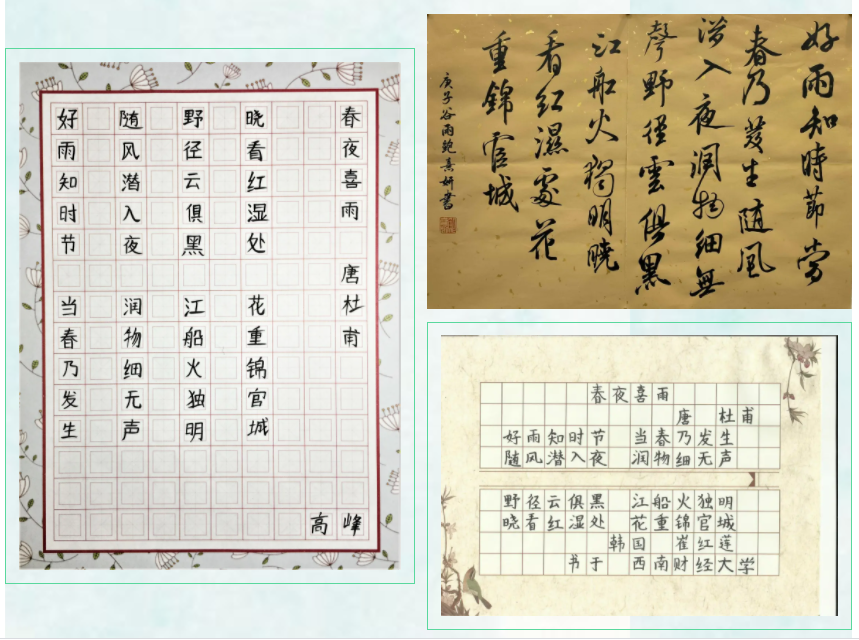 春夜喜雨 唐杜甫
好雨知时节 当春乃发生
随风潜入夜 润物细无声
野径云俱黑 江船火独明
晓看红湿处 花重锦官城
高峰
好雨知時節當
春乃發生隨風
潛入夜潤物細無
聲野徑雲俱黑
江船火獨明曉
看紅濕處花
重錦官城
庚子谷雨鲍熹妍書
春夜喜雨
唐 杜甫
好雨知时节 当春乃发生
随风潜入夜 润物细无声
野径云俱黑 江船火独明
晓看红湿处 花重锦官城
韩国 崔红莲
书于 西南财经大学